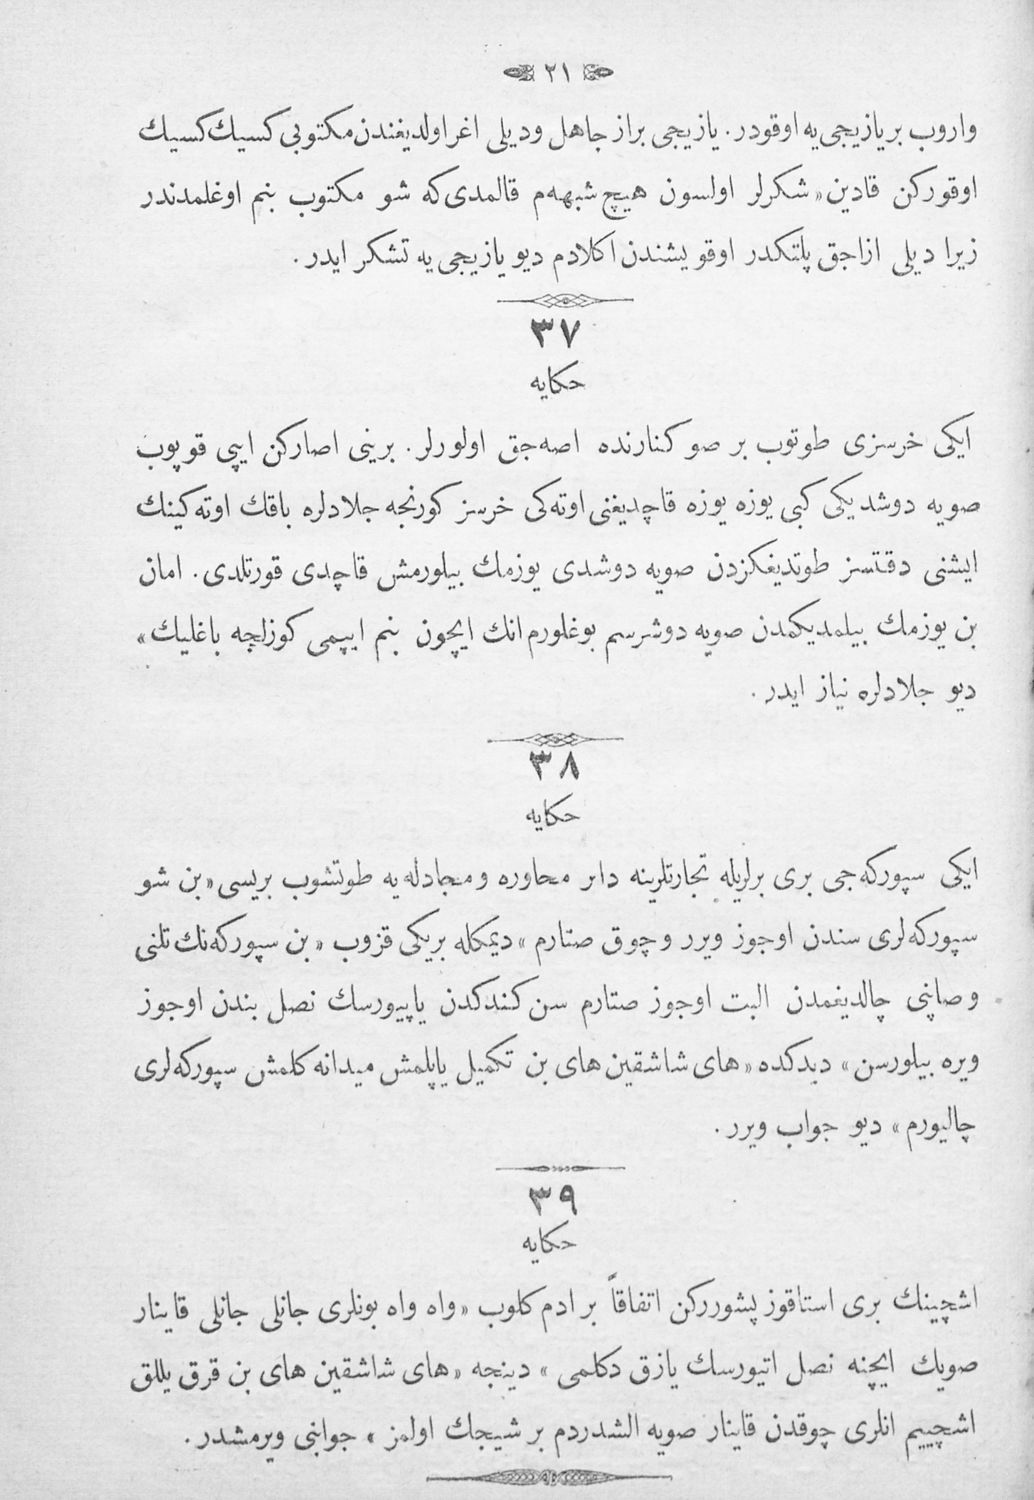 ٢١
واروب بر یازیجی‌یه اوقودر. یازیجی براز جاهل ودیلی اغر اولدیغندن مکتوبی کسیك کسیك
اوقورکن قادین «شکرلر اولسون هیچ شبهه‌م قالمدی که شو مکتوب بنم اوغلمدندر
زیرا دیلی ازاجق پلتکدر اوقویشندن اکلادم دیو یازیجی‌یه تشکر ایدر.
٣٧
حکایه
ایکی خرسزی طوتوب بر صو کنارنده اصه‌جق اولورلر. برینی اصارکن ایپی قوپوب
صویه دوشدیکی کبی یوزه یوزه قاچدیغنی اوته‌کی خرسز کورنجه جلادلره باقك اوته‌کینك
ایشنی دقتسز طوتدیغکزدن صویه دوشدی یوزمك بیلورمش قاچدی قورتلدی. امان
بن یوزمك بیلمدیکمدن صویه دوشرسم بوغلورم انك ایچون بنم ایپمی کوزلجه باغلیك»
دیو جلادلره نیاز ایدر.
٣٨
حکایه
ایکی سپورکه‌جی بری برلریله تجارتلرینه دائر محاوره ومجادله‌یه طوتشوب بریسی «بن شو
سپورکه‌لری سندن اوجوز ویرر وچوق صتارم» دیمکله بریکی قزوب «بن سپورکه‌نك تلنی
وصاپنی چالدیغمدن البت اوجوز صتارم سن کندکدن یاپیورسك نصل بندن اوجوز
ویره بیلورسن» دیدکده «های شاشقین های بن تکمیل یاپلمش میدانه کلمش سپورکه‌لری
چالیورم» دیو جواب ویرر.
٣٩
حکایه
اشچینك بری استاقوز پشوررکن اتفاقاً بر ادم کلوب «واه واه بونلری جانلی جانلی قاینار
صویك ایچنه نصل اتیورسك یازق دکلمی» دینجه «های شاشقین های بن قرق ییللق
اشچییم انلری چوقدن قاینار صویه الشدردم بر شیجك اولمز» جوابنی ویرمشدر.